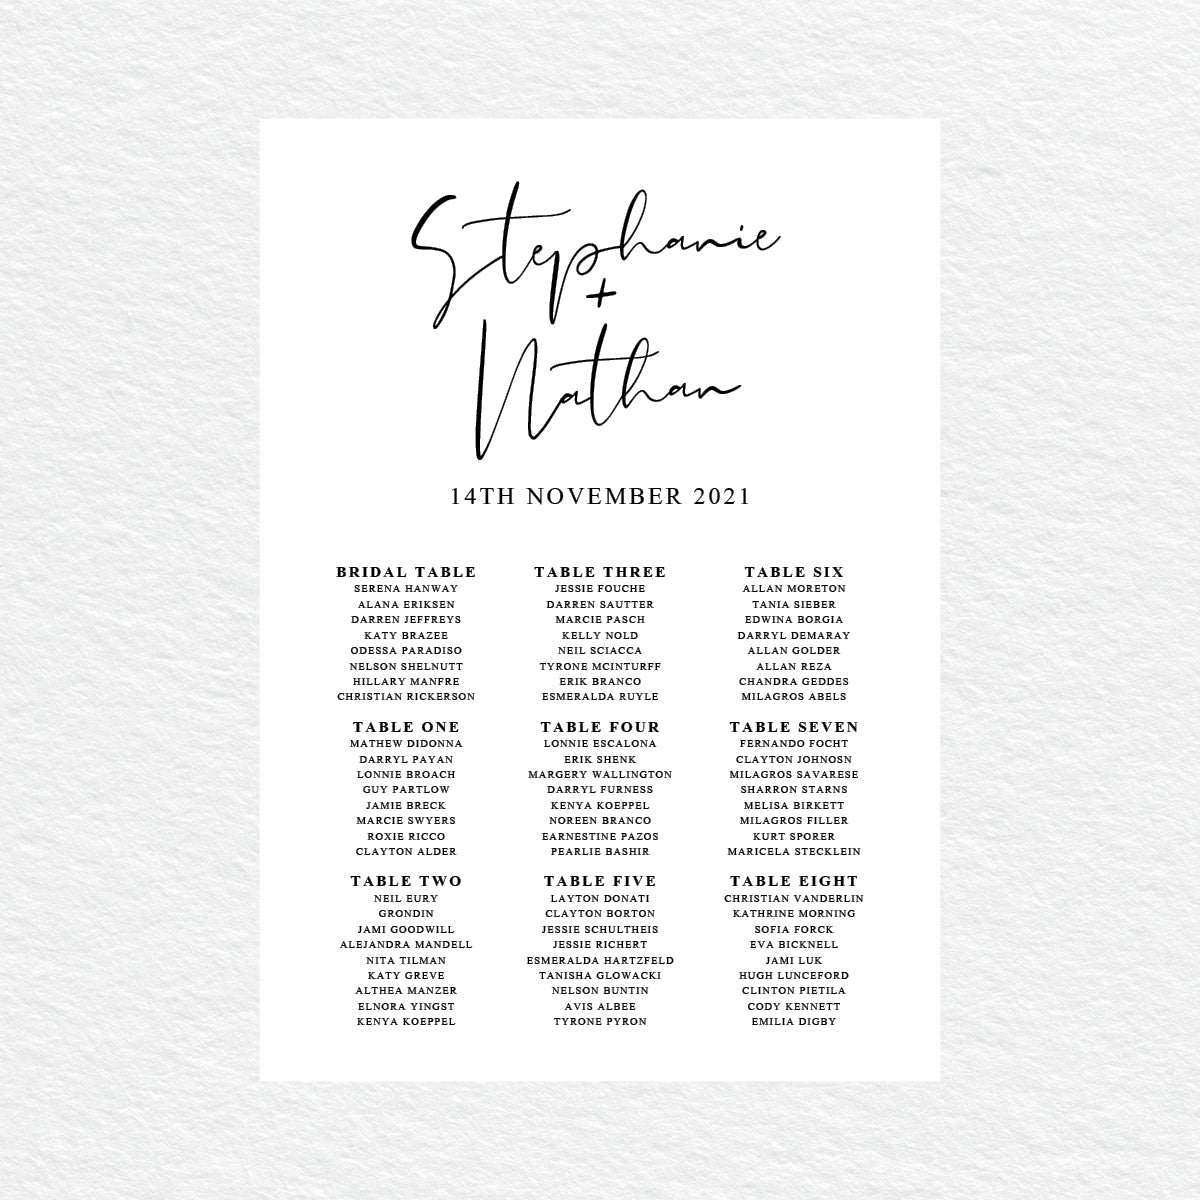 Stephanie
+
Nathan
14TH NOVEMBER 2021
BRIDAL TABLE
SERENA HANWAY
ALANA ERIKSEN
DARREN JEFFREYS
KATY BRAZEE
ODESSA PARADISO
NELSON SHELNUTT
HILLARY MANFRE
CHRISTIAN RICKERSON
TABLE ONE
MATHEW DIDONNA
DARRYL PAYAN
LONNIE BROACH
GUY PARTLOW
JAMIE BRECK
MARCIE SWYERS
ROXIE RICCO
CLAYTON ALDER
TABLE TWO
NEIL EURY
GRONDIN
JAMI GOODWILL
ALEJANDRA MANDELL
NITA TILMAN
KATY GREVE
ALTHEA MANZER
ELNORA YINGST
KENYA KOEPPEL
TABLE THREE
JESSIE FOUCHE
DARREN SAUTTER
MARCIE PASCH
KELLY NOLD
NEIL SCIACCA
TYRONE MCINTURFF
ERIK BRANCO
ESMERALDA RUYLE
TABLE FOUR
LONNIE ESCALONA
ERIK SHENK
MARGERY WALLINGTON
DARRYL FURNESS
KENYA KOEPPEL
NOREEN BRANCO
EARNESTINE PAZOS
PEARLIE BASHIR
TABLE FIVE
LAYTON DONATI
CLAYTON BORTON
JESSIE SCHULTHEIS
JESSIE RICHERT
ESMERALDA HARTZFELD
TANISHA GLOWACKI
NELSON BUNTIN
AVIS ALBEE
TYRONE PYRON
TABLE SIX
ALLAN MORETON
TANIA SIEBER
EDWINA BORGIA
DARRYL DEMARAY
ALLAN GOLDER
ALLAN REZA
CHANDRA GEDDES
MILAGROS ABELS
TABLE SEVEN
FERNANDO FOCHT
CLAYTON JOHNOSN
MILAGROS SAVARESE
SHARRON STARNS
MELISA BIRKETT
MILAGROS FILLER
KURT SPORER
MARICELA STECKLEIN
TABLE EIGHT
CHRISTIAN VANDERLIN
KATHRINE MORNING
SOFIA FORCK
EVA BICKNELL
JAMI LUK
HUGH LUNCEFORD
CLINTON PIETILA
CODY KENNETT
EMILIA DIGBY